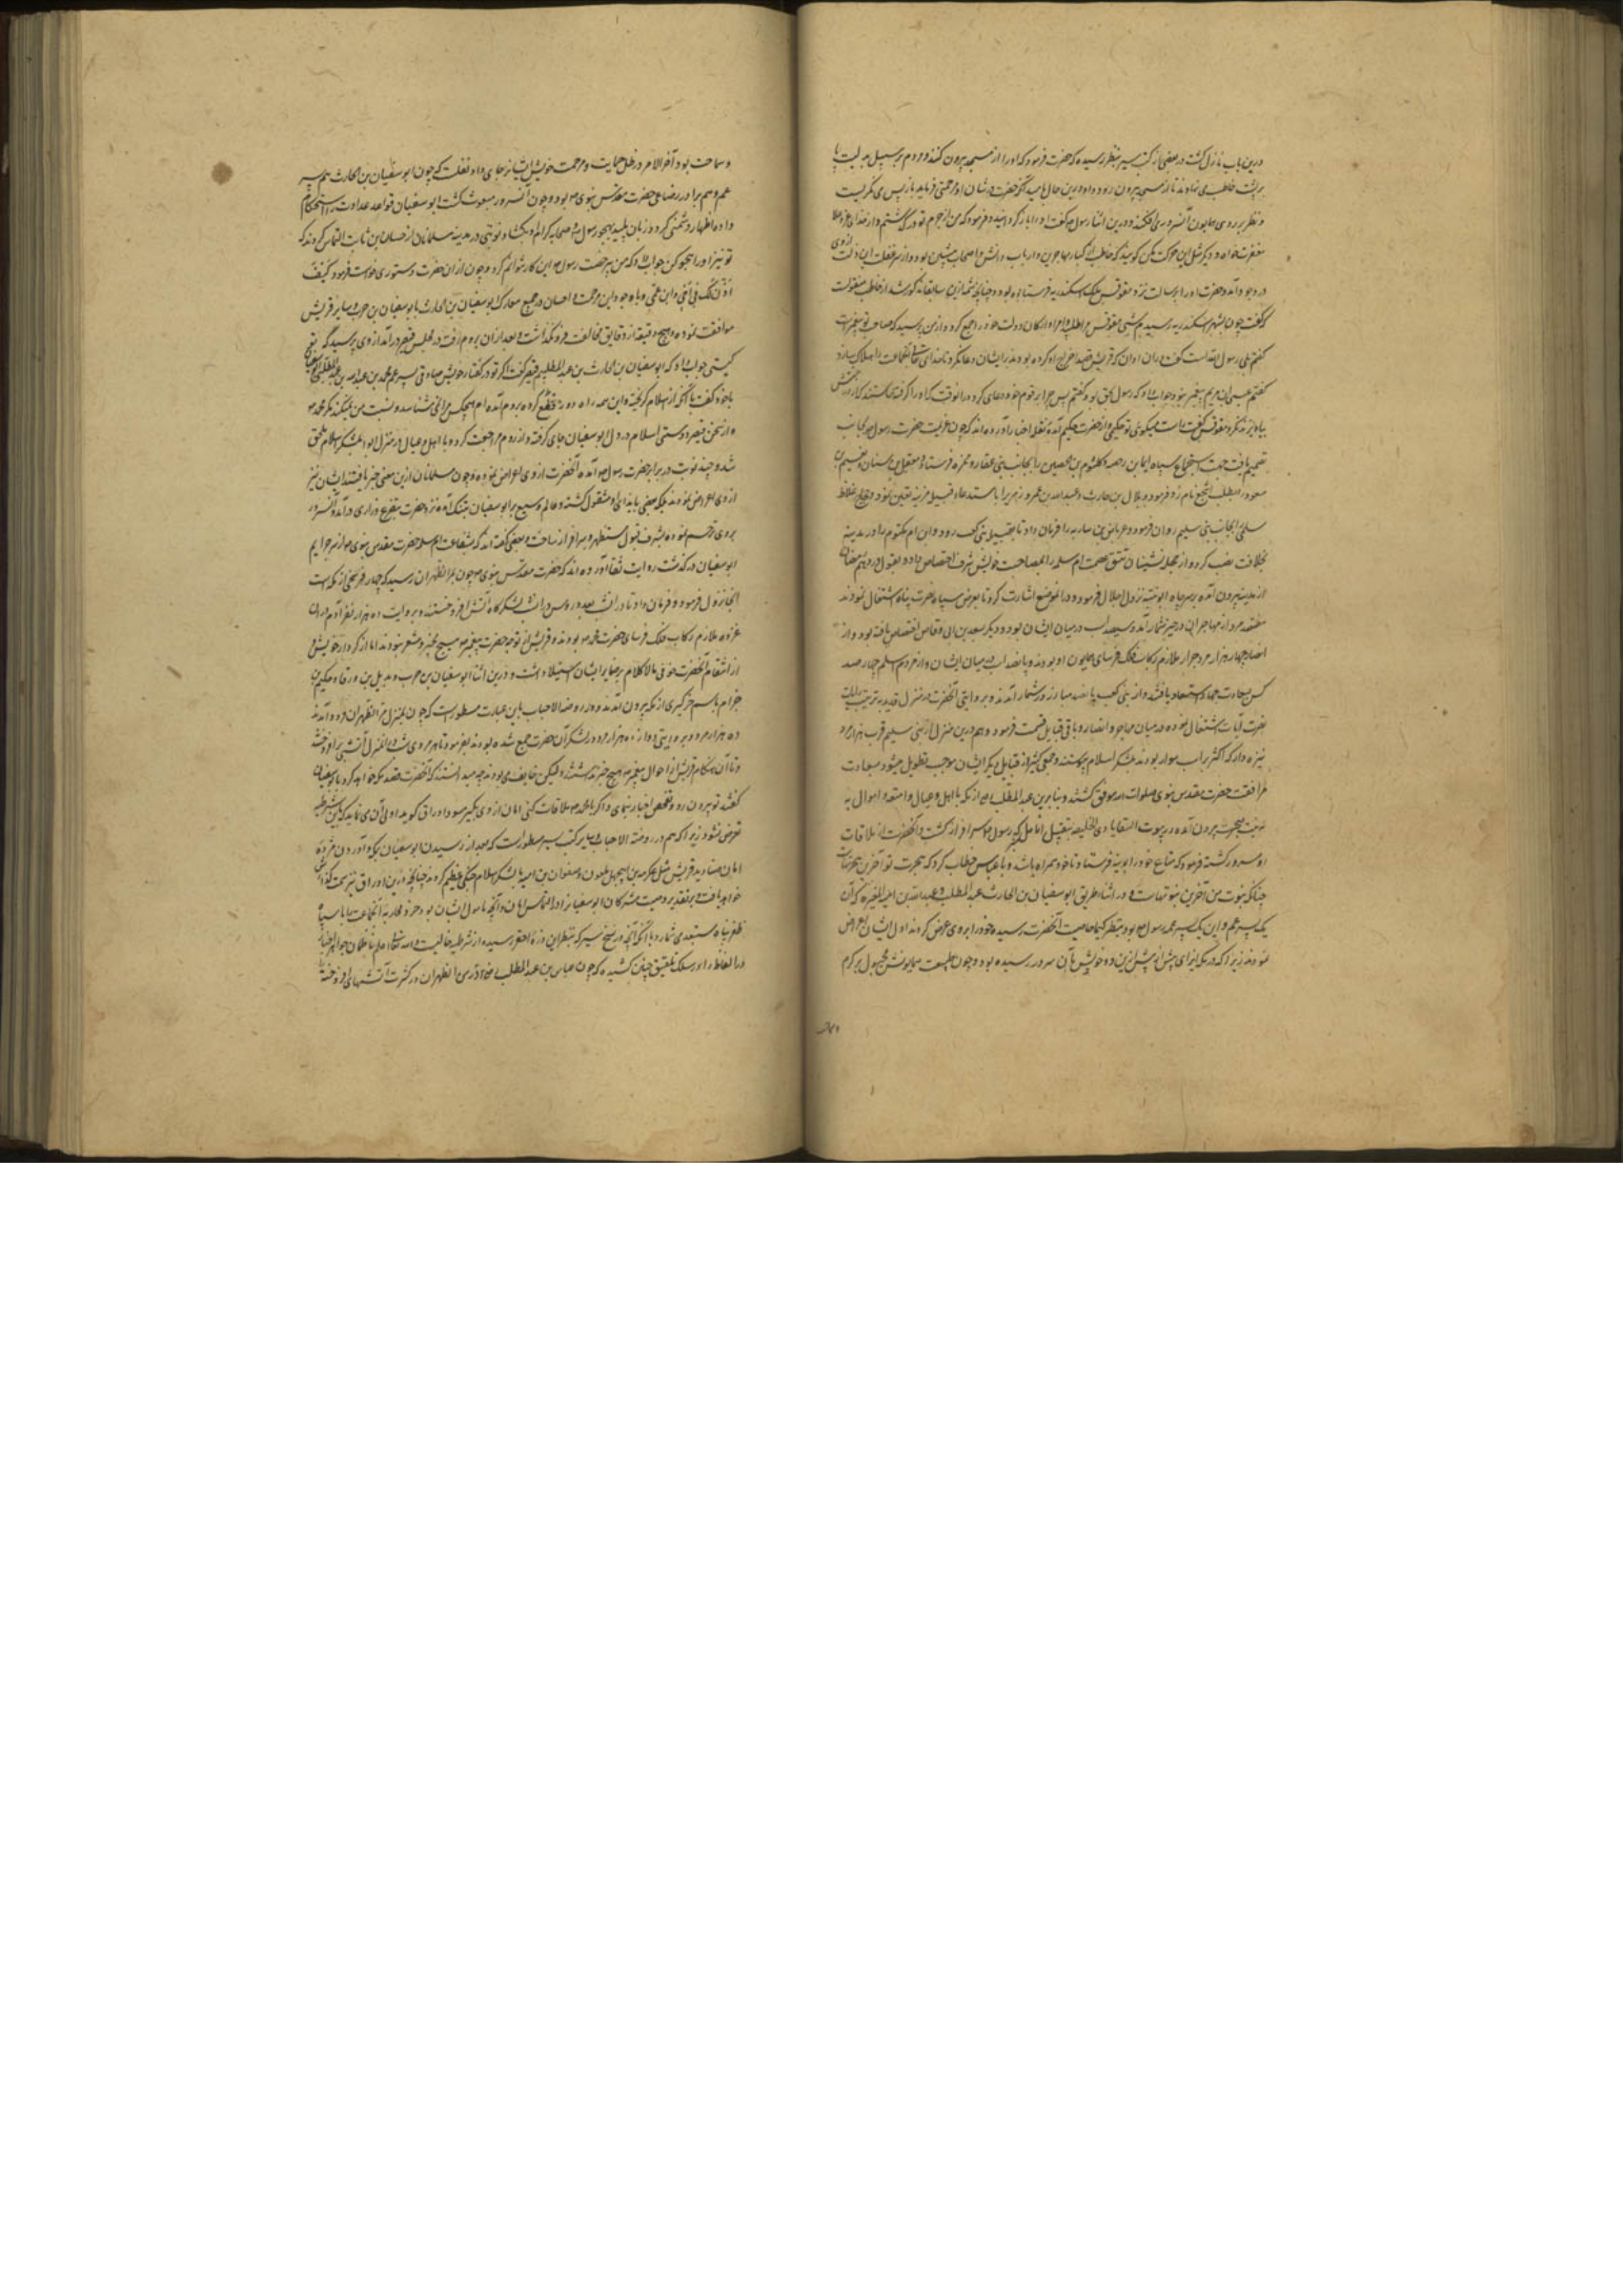 درین باب نازل گشت در بعضی از کتب سیر بنظر رسیده که حضرت فرمود که او را از مسجد بیرون کنند و مردم بر سبیل
بر پشت حاطب می نهادند تا از مسجد بیرون رود و او درین حال بامید آنکه حضرت در شان او مرحمتی فرماید باز پس می نگریست
و نظر بر روی همایون آنسرور می افکند و درین اثنا رسول گفت او را باز گردانید و فرمود که من از جرم تو درگذشتم و از خدای
مغفرت خواه و دیگر مثل این حرکت مکن گویند که حاطب از کبار مهاجرین و ارباب دانش و اصحاب پیشین بود و از سر غفلت این زلت از وی
در وجود آمد و حضرت او را برسالت نزد مقوقس ملک اسکندریه فرستاده بود و چنانچه شمه ازین سابقا مذکور شد از حاطب منقولست
که گفت چون بشهر اسکندریه رسیدم شبی مقوقس مرا طلب و امرا و ارکان دولت خود را جمع کرده از من پرسید که صاحب تو پیغمبر است
گفتم بلی رسول الله است گفت دران اوان که قریش قصد اخراج او کرده بودند بر ایشان دعا نکرد تا خدای تعالی آنجماعت را هلاک سازد
گفتم عیسی بن مریم پیغمبر بود جواب داد که رسول بحق بود گفتم پس چرا بر قوم خود دعای نکرد در آنوقت که او را گرفته
مقوقس گفت راست میگوئی تو حکیمی و از حضرت حکیم آمده نقله اخبار آورده اند که چون عزیمت حضرت رسول بجانب
تصمیم یافت جهت اجتماع سپاه ایما بن رحضه و کلثوم بن الحصین را بجانب بنی غفار و ضمره فرستاد و معقل بن سنان و نعیم بن
مسعود را بطلب اشجع نامزد فرمود و بلال بن حارث و عبدالله بن عمرو مزنی را باستدعاء قبیله مزینه تعیین نمود و حجاج علاط
سلمی را بجانب بنی سلیم روان فرمود و عرباض بن ساریه را فرمان داد تا بقبیله بنی کعب رود و ابن ام مکتوم را در مدینه
بخلافت نصب کرده از مجله نشینان تتق عصمت ام سلمه را بمصاحبت خویش شرف اختصاص داده و بقول در دهم رمضان
از مدینه بیرون آمده بر سر چاه ابو عتبه نزول اجلال فرمود و در آن موضع اشارت کرد تا بعرض سپاه نصرت پناه اشتغال نمودند
هفتصد مرد از مهاجران در حیز شمار آمد و سیصد اسب در میان ایشان بود و دیگر سعد بن ابی وقاص اختصاص یافته بود و از
انصار چهار هزار مرد جرار ملازم رکاب فلک فرسای همایون او بودند و پانصد اسب در میان ایشان و از مردم اسلم چهارصد
کس سعادت همراهی و استسعاد یافتند و از بنی کعب پانصد مبارز در شمار آمدند و بروایتی آنحضرت در منزل قدید به ترتیب رایات
نصرت آیات اشتغال نموده در میان مهاجر و انصار و باقی قبایل قسمت فرمود و هم درین منزل از بنی سلیم قرب هزار مرد
نیزه دار که اکثر بر اسب سوار بودند بلشکر اسلام پیوستند و جمعی کثیر از قبایل دیگر ایشان موجب تطویل میشود بسعادت
مرافقت حضرت مقدس نبوی صلوات الله موفق گشتند و عباس بن عبدالمطلب از مکه با اهل و عیال و امتعه و اموال به
نیت هجرت بیرون آمده در بیوت السقیا یا ذی الحلیفه بتقبیل انامل رسول سرافراز گشت و آنحضرت از ملاقات
او مسرور گشته فرمود که متاع خود را بمدینه فرستاد تا خود همراه باشد و با عباس خطاب کرد که هجرت تو آخرین هجرتهاست
چنانکه نبوت من آخرین نبوتهاست و در اثناء طریق ابو سفیان بن الحارث بن عبدالمطلب و عبدالله بن امیه المغیره که آن
یک پسر عم و این یک پسر عمه رسول بود بنظر کیمیا خاصیت آنحضرت رسیده خود را بر وی عرض کردند اول ایشان اعراض
نمودند زیرا که در مکه ایذای بیش از پیش ازین دو خویش بآن سرور رسیده بود و چون طبیعت همایونش مجبول بر کرم
و سماحت بود آخر الامر در ظل حمایت و مرحمت خویش ایشانرا جای داد نقلست که چون ابو سفیان بن الحارث هم پسر
عم و هم برادر رضاعی حضرت مقدس نبوی بود و چون آنسرور مبعوث گشت ابو سفیان قواعد عداوت را استحکام
داده اظهار دشمنی کرد و زبان پلید بهجو رسول و صحابه کرام بگشاد و نوبتی در مدینه مسلمانان از حسان بن ثابت التماس کردند که
تو نیز او را هجو کن جواب داد که من بی رخصت رسول این کار نتوانم کرد و چون از ان حضرت دستوری خواست فرمود کیف
آذن لک فی اخی و ابن عمی و با وجود این مرحمت و احسان در جمیع معارک ابو سفیان بن الحارث با ابو سفیان بن حرب و سایر قریش
موافقت نموده و هیچ دقیقه از دقایق مخالفت فرو نگذاشت و بعد از ان بروم رفت در مجلس قیصر درآمد از وی پرسید که
کیستی جواب داد که ابو سفیان بن الحارث بن عبدالمطلب قیصر گفت اگر تو در گفتار خویش صادقی پسر عم محمد بن عبدالله بن عبدالمطلب
با خود گفت با آنکه از اسلام گریخته و این همه راه دور قطع کرده بروم آمده ام هیچکس مرا نمی شناسد و نسبت من نمیکنند مگر بمحمد
و از سخن قیصر دوستی اسلام در دل ابو سفیان جای گرفته و از روم مراجعت کرده با اهل و عیال در منزل ابوا بلشکر اسلام ملحق
شد و چند نوبت در برابر حضرت رسول آمده آنحضرت از وی اعراض نموده و چون مسلمانان ازین معنی خبر یافتند ایشان نیز
از وی اعراض نمودند بلکه بعضی بایذای او مشغول گشتند و عالم وسیع بر ابو سفیان تنگ آمده نزد حضرت بتضرع و زاری درآمد و آنسرور
بر وی ترحم نموده بشرف قبول مستظهر و سرافراز ساخت و بعضی گفته اند که بشفاعت ام سلمه حضرت مقدس نبوی از سر جرایم
ابو سفیان درگذشت روایت ثقات آورده اند که حضرت مقدس نبوی چون بمر الظهران رسید که چهار فرسخی از مکه است
آنجا نزول فرمود و فرمان داد تا در آن شب بعدد رؤس در آن لشکرگاه آتش افروختند و بروایت ده هزار نفر آدم دران
غزوه ملازم رکاب فلک فرسای حضرت بودند و قریش از توجه حضرت پیغمبر هیچ مخبر و مشعر نبودند اما از کردار خویش و
از انتقام آنحضرت خوفی مالا کلام بر ضمایر ایشان استیلا داشت و درین اثنا ابو سفیان بن حرب و بدیل بن ورقا و حکیم بن
حزام باسم خبرگیری از مکه بیرون آمدند و در روضه الاحباب باین عبارت مسطور است که چون بمنزل مر الظهران فرود آمدند
ده هزار مرد و بروایتی دوازده هزار مرد در لشکر آن حضرت جمع شده بودند بفرمود تا هر مردی شب در آن منزل آتشی برافروخت
و تا آن هنگام قریش از احوال پیغمبر هیچ خبر نداشتند و لیکن خایف می بودند چه میدانستند که آنحضرت قصد مکه خواهد کرد با ابو سفیان
گفتند تو بیرون رو و تفحص اخبار نمای و اگر با محمد ملاقات کنی امان از وی بگیر
تعرض نشود زیرا که هم در روضه الاحباب و سایر کتب سیر مسطور است که بعد از رسیدن ابو سفیان بمکه و آوردن مژده
امان صنادید قریش مثل عکرمه بن ابوجهل ملعون و صفوان بن امیه با لشکر اسلام جنگی عظیم کردند چنانچه درین اوراق نیز سمت گذارش
خواهد یافت و بر تقدیر وصیت مشرکان ابو سفیانرا در التماس امان و آنچه مامول ایشان بود حرب و محاربه آنجماعت با سپاه
ظفر پناه مستبعد می شمارد با آنکه آنچه در نسخ سیر که بنظر این ذره احقر رسیده از شرطیه خالیست و الله تعالی اعلم ناظمان جواهر اخبار
درر الفاظ را در سلک تلفیق چنین کشیده که چون عباس بن عبدالمطلب در مر الظهران در کثرت آتشهای افروخته